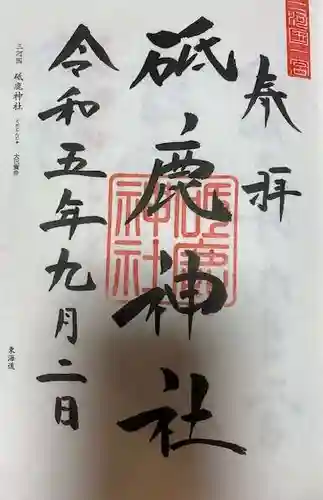 三河國一宮
奉拝
砥鹿神社
砥鹿神社
令和五年九月二日
三河国 砥鹿神社
東海道